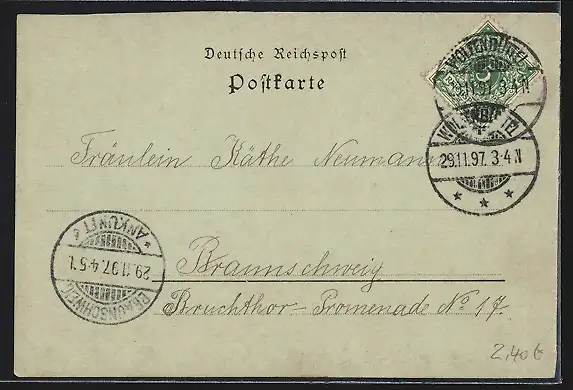 Deutsche Reichspost
Postkarte
WOLFENBÜTTEL
29.11.97. 3-4 N
29.11.97. 3-4 N
Fräulein Käthe Neumann
BRAUNSCHWEIG
29.11.97. 4-5 N.
* ANKUNFT *
Braunschweig
Bruchthor-Promenade No 17.
2,40 €